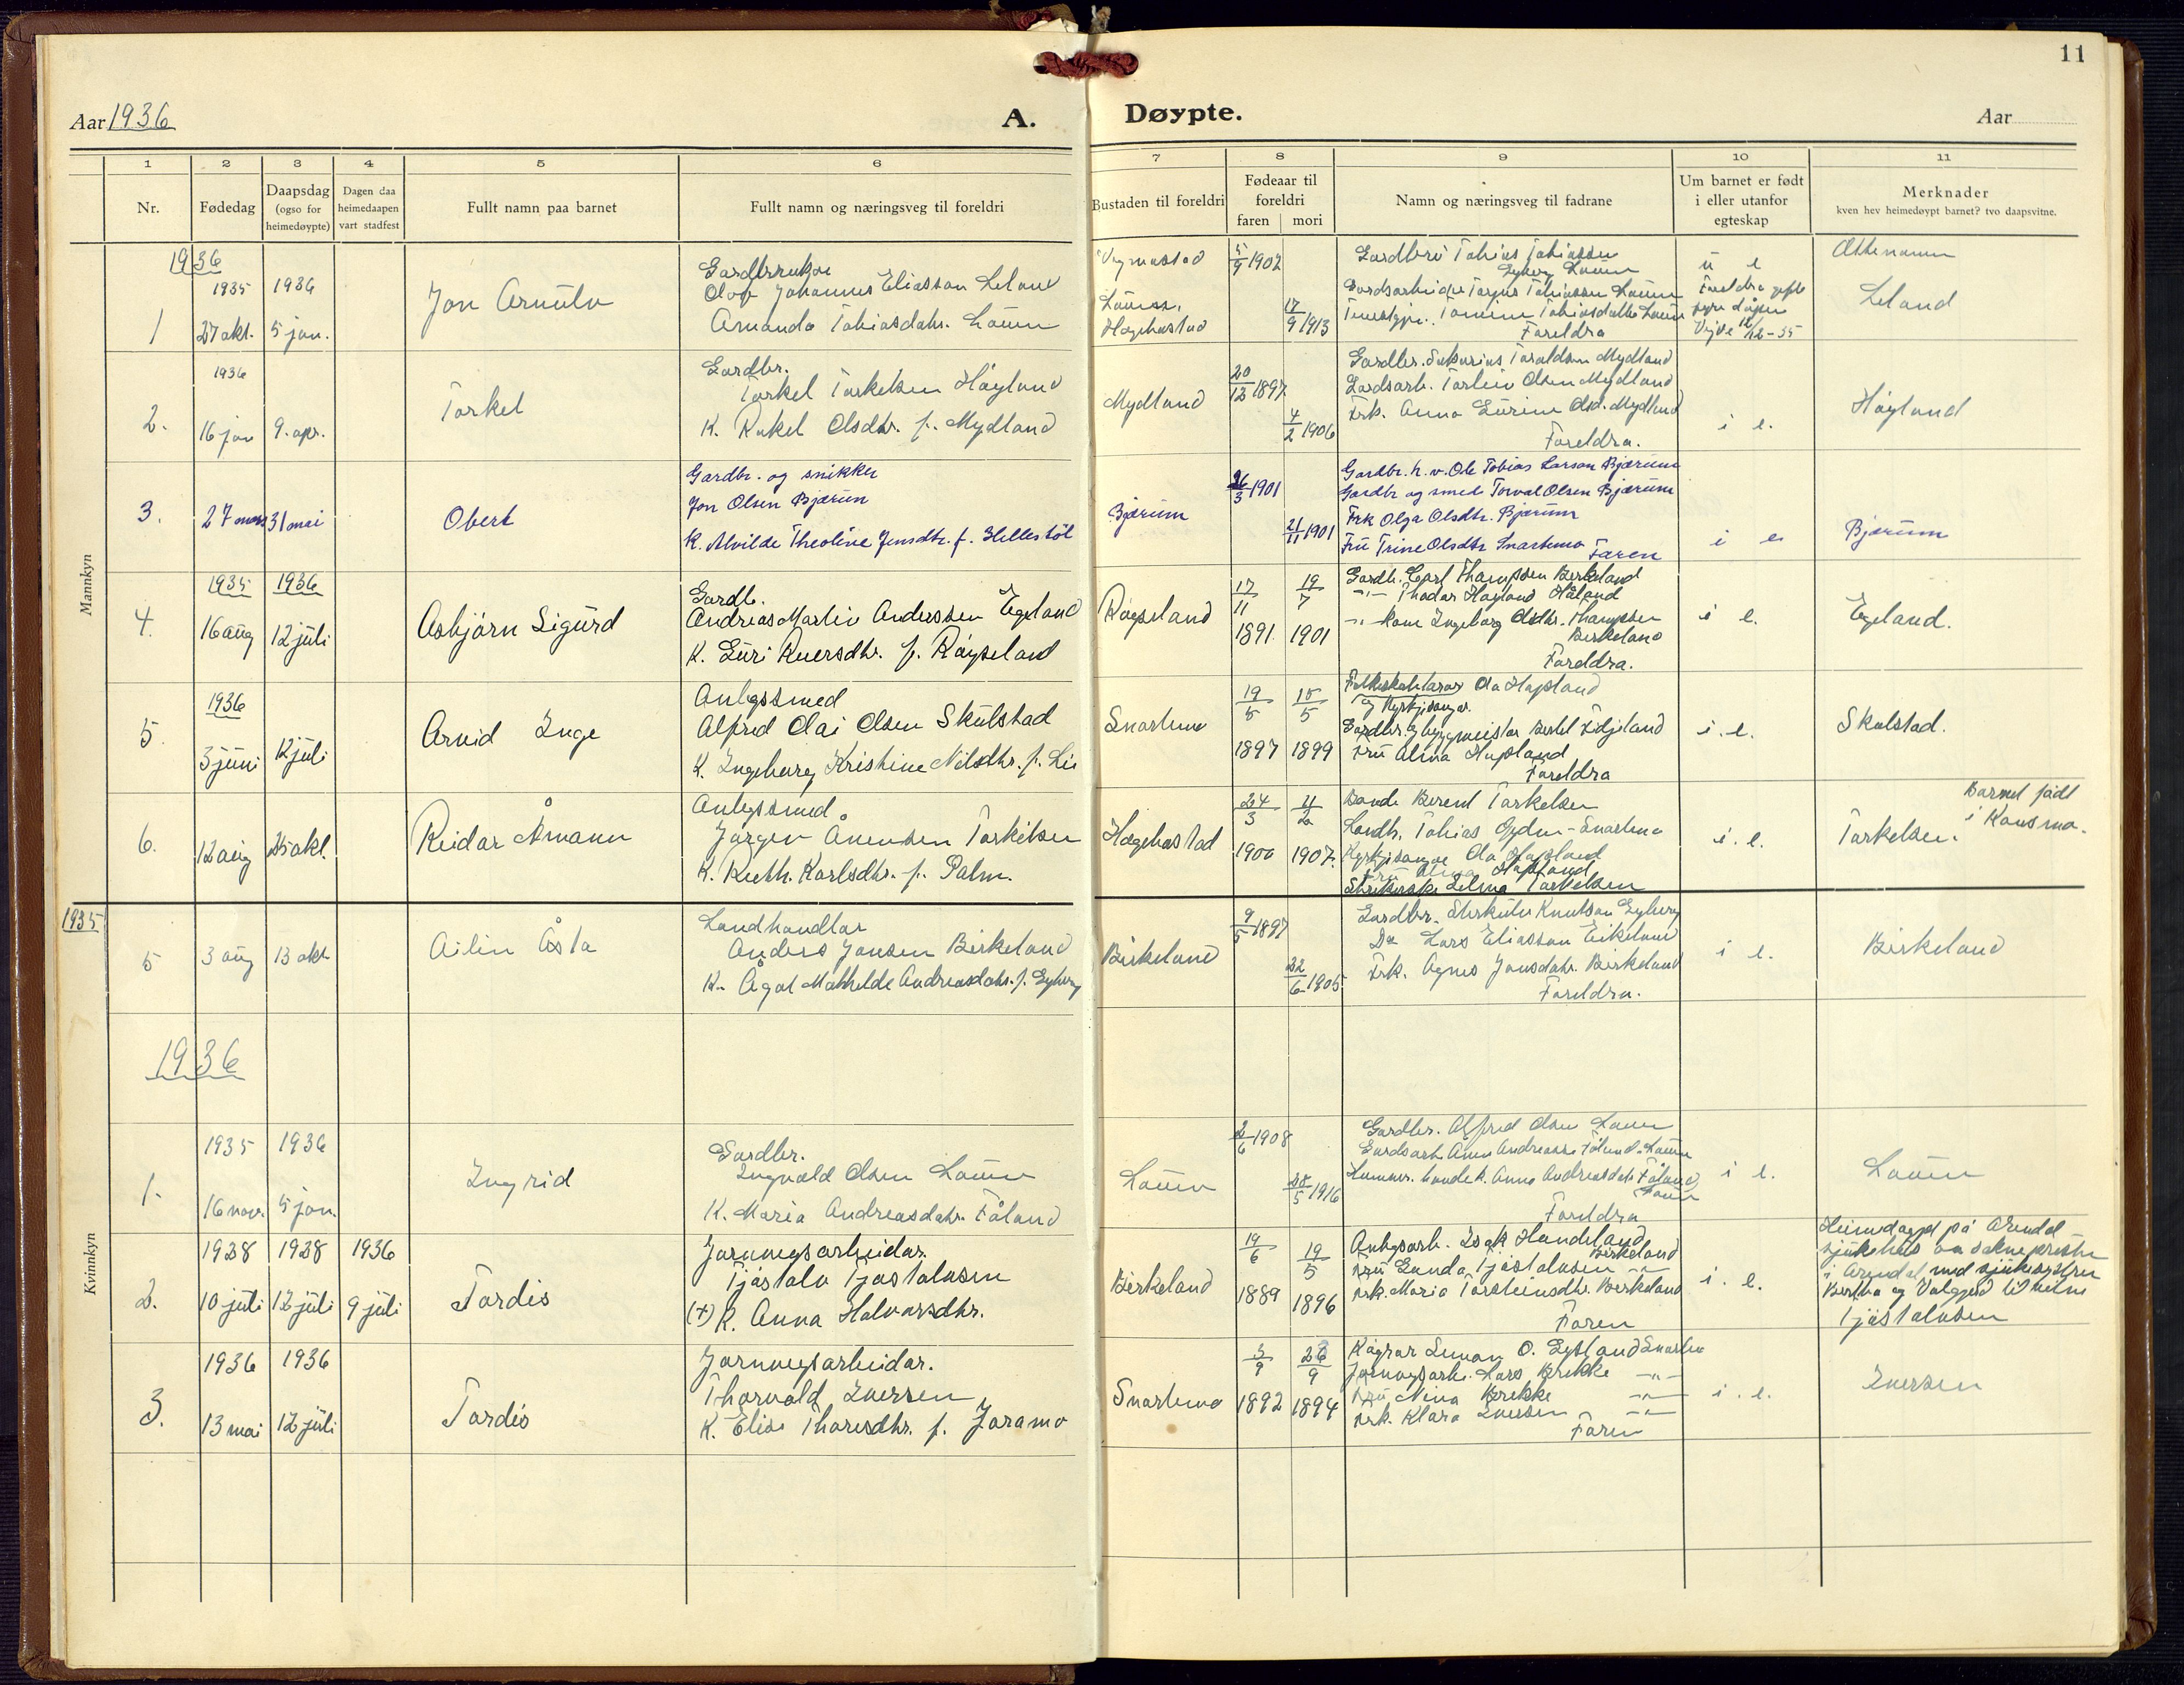 11
Aar 1936
A.
Døypte.
Aar
1
2
3
4
5
6
7
8
9
10
11
Nr.
Fødedag
Daapsdag
(ogso for
heimedøypte)
Dagen daa
heimedaapen
vart stadfest
Fullt namn paa barnet
Fullt namn og næringsveg til foreldri
Bustaden til foreldri
Fødeaar til
foreldri
faren
mori
Namn og næringsveg til fadrane
Um barnet er født
i eller utanfor
egteskap
Merknader
kven hev heimedøypt barnet? tvo daapsvitne.
Mannkyn
1936
1935
1936
1
27 okt.
5 jan.
Jon Arnulv
Gardbrukar
Olav Johannes Eliassen Leland
Amanda Tobiasdatr. Lauen
Hægebostad
5/9 1902
17/9 1913
Gardbr. Tobias Tobiassen
Gardsarbeidar Torjus Tobiassen Lauen
Foreldra
u e
Foreldra gifte
fyre dåpen
12/12-35
Ættenamn
Leland
1936
2.
16 jan
9. apr.
Torkel
Gardbr.
Torkel Torkelsen Høyland
K. Rakel Olsdtr. f. Mydland
Mydland
20/12 1897
4/2 1906
Gardbr. Sakarias Taraldsen Mydland
Gardsarb. Torleiv Olsen Mydland
Frk. Anna Gurine Olsd. Mydland
Foreldra.
i e.
Høyland
3.
27 mars
31 mai
Obert
Gardbr. og snikker
Jon Olsen Bjærum
K. Alvilde Theoline Jensdtr. f. Hellestøl
Bjærum
26/3 1901
21/11 1901
Gardbr. h.v. Ole Tobias Larson Bjærum
Gardbr og smed Torval Olsen Bjærum
Frk Olga Olsdtr. Bjærum
Fru Trine Olsdtr Snartemo
Faren
i e
Bjærum
1935
1936
4.
16 aug
12 juli
Asbjørn Sigurd
Gardb.
Andreas Martin Anderssen Egeland
K. Guri Reiersdtr. f. Røyseland
Røyseland
17/11 1891
19/7 1901
Gardb. Carl Thompsen Birkeland
-"- Thodar Høyland Håland
-"- kone Ingeborg Olsdtr. Thompsen
Birkeland
Foreldra.
i e.
Egeland.
1936
5
3 juni
12 juli
Arvid Inge
Anlegssmed
Alfred Olai Olsen Skulstad
K. Ingeborg Kristine Nilsdtr. f. Lie
Snartemo
19/5 1897
15/5 1899
Folkeskulelærar Ola Hapland
og Kyrkjesongar.
Gardbr. og byggmeister Bertel Fidjeland
Fru Alma Hapland
Foreldra
i. e.
Skulstad.
6.
12 aug
25 okt.
Reidar Åmann
Anlegssmed
Jørgen Anensen Torkelsen
K. Ruth Karlsdtr. f. Palm.
Hægebostad
24/3 1900
11/2 1907.
Bonde Berent Torkelsen
Landh. Tobias Gyden-Snartemo
Kyrkjesongar Ola Hapland
Fru Alma Hapland
Selma Torkelsen
i. e.
Torkelsen.
Barnet født
i Konsmo.
1935
5
3 aug
13 okt
Ailin Åsta
Landhandlar
Anders Jonsen Birkeland
K. Ågot Mathilde Andreasdatr. f. Gyberg
Birkeland
9/5 1897
22/6 1905
Gardbr. Sterkulv Knutsen Gyberg
Do Lars Eliassen Eikeland
Frk. Agnes Jonsdatr. Birkeland
Foreldra.
i e.
Birkeland
1936
Kvinnkyn
1935
1936
1.
16 nov.
5 jan.
Ingrid
Gardbr.
Ingvald Olsen Lauen
K. Maria Andreasdatr. Fåland
Lauen
2/6 1908
28/5 1916
Gardbr. Alfred Olsen Lauen
Anna Andreasdatr Fåland
Foreldra
i e.
Lauen
1928
1928
1936
2.
10 juli
12 juli
9 juli
Tordis
Jarnvegsarbeidar.
Tjøstolv Tjøstolvsen
(+) K. Anna Halvorsdtr.
Birkeland
19/6 1889
19/5 1896
Anlegsarb. Isak Handeland
Birkeland
Fru Gunda Tjøstolvsen -"-
Frk. Maria Torsteinsdtr. Birkeland
Faren
i. e.
Heimedøypt på Arendal
sjukehus av sokneprsten
i Arendal med sjukesystrer
Bertha og Valgjerd til vitne
Tjøstolvsen
1936
1936
3.
13 mai
12 juli
Tordis
Jarnvegsarbeidar.
Thorvald Iversen
K. Elise Thoresdtr. f. Joramo
Snartemo
3/9 1892
26/9 1894
O. Egeland Snartemo
Jarnvegsarb. Lars Brekke -"-
Fru Nina Brekke -"-
Frk. Klara Iversen -"-
Faren
i. e.
Iversen